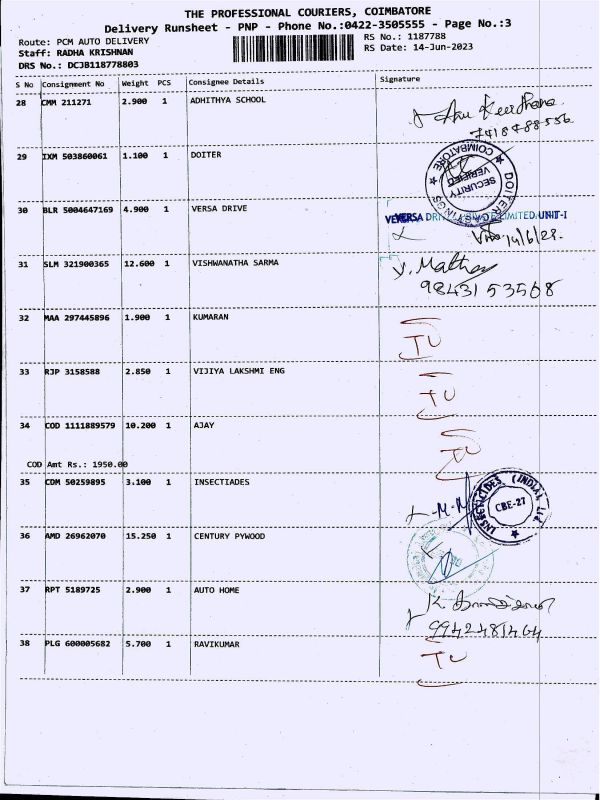 THE PROFESSIONAL COURIERS, COIMBATORE
Delivery Runsheet - PNP - Phone No.:0422-3505555 - Page No.:3
Route: PCM AUTO DELIVERY
Staff: RADHA KRISHNAN
DRS No.: DCJB118778803
RS No.: 1187788
RS Date: 14-Jun-2023
S No Consignment No Weight PCS Consignee Details Signature
28 CMM 211271 2.900 1 ADHITHYA SCHOOL
29 IXM 503860061 1.100 1 DOITER
COIMBATORE
SECURITY
VERIFIED
30 BLR 5004647169 4.900 1 VERSA DRIVE
LIMITED UNIT-I
14/6/23.
31 SLM 321900365 12.600 1 VISHWANATHA SARMA
98431 53568
32 MAA 297445896 1.900 1 KUMARAN
33 RJP 3158588 2.850 1 VIJIYA LAKSHMI ENG
34 COD 1111889579 10.200 1 AJAY
COD Amt Rs.: 1950.00
35 CDM 50259895 3.100 1 INSECTIADES
INSECTICIDES (INDIA) Ltd
CBE-27
36 AMD 26962070 15.250 1 CENTURY PYWOOD
37 RPT 5189725 2.900 1 AUTO HOME
9942481464
38 PLG 600005682 5.700 1 RAVIKUMAR